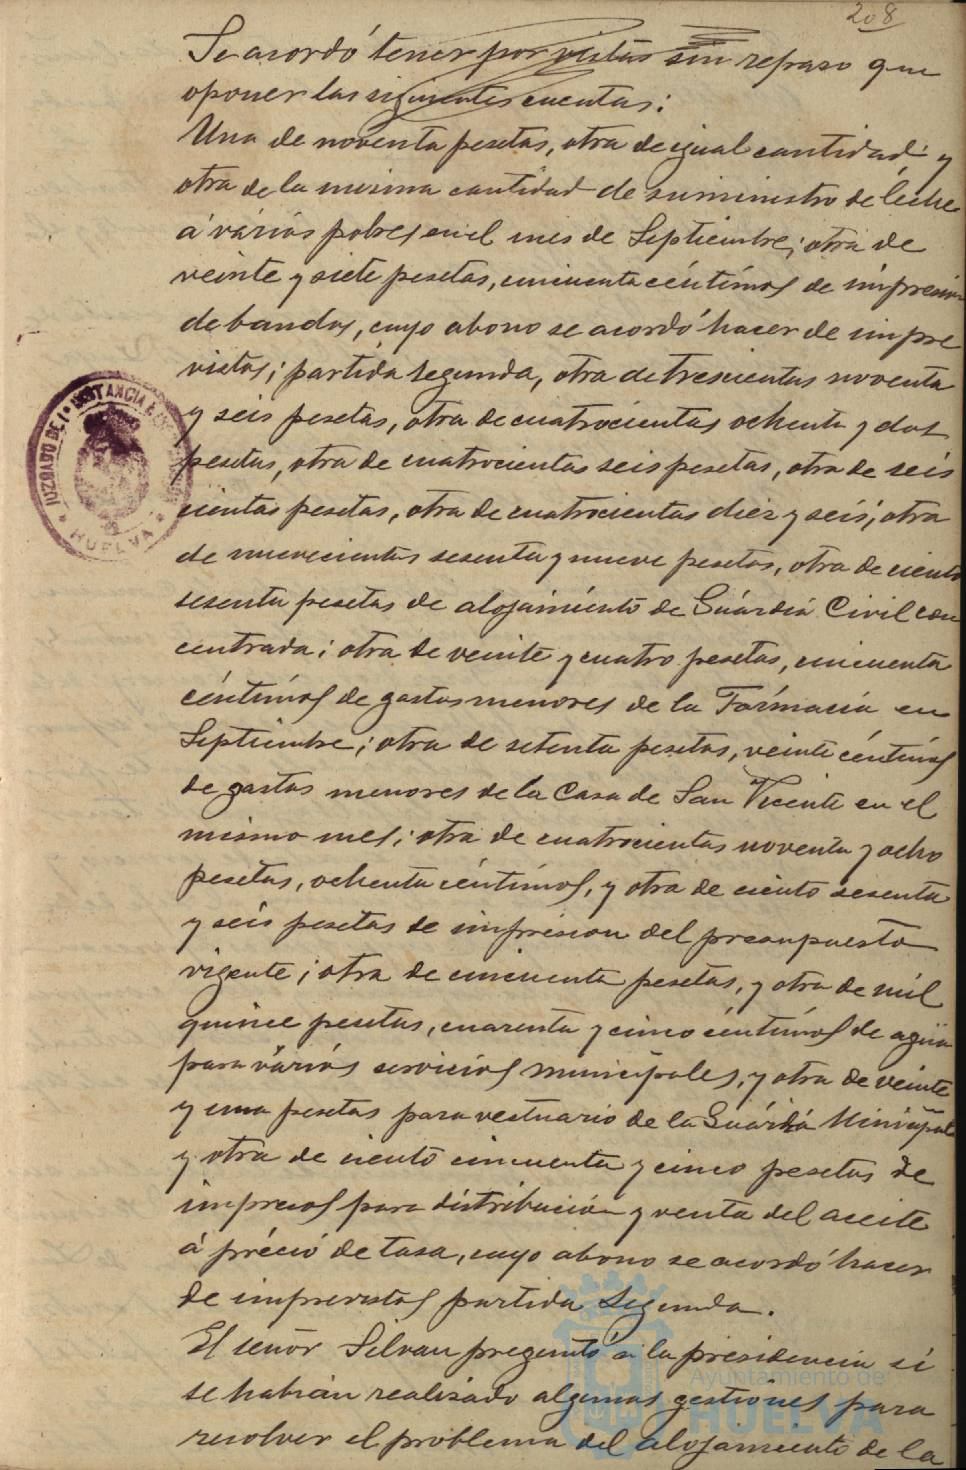 208
Se acordó tener por vistas sin reparo que
oponer las siguientes cuentas:
Una de noventa pesetas, otra de igual cantidad y
otra de la misma cantidad de suministro de leche
á varios pobres en el mes de Septiembre; otra de
veinte y siete pesetas, cincuenta céntimos de impresion
de bandos, cuyo abono se acordó hacer de impre
vistos; partida segunda, otra de trescientas noventa
y seis pesetas, otra de cuatrocientas ochenta y dos
pesetas, otra de cuatrocientas seis pesetas, otra de seis
cientas pesetas, otra de cuatrocientas diez y seis, otra
de nuevecientas sesenta y nueve pesetas, otra de ciento
sesenta pesetas de alojamiento de Guardia Civil con
centrada; otra de veinte y cuatro pesetas, cincuenta
céntimos de gastos menores de la Farmacia en
Septiembre; otra de setenta pesetas, veinte céntimos
de gastos menores de la Casa de San Vicente en el
mismo mes; otra de cuatrocientas noventa y ocho
pesetas, ochenta céntimos, y otra de ciento sesenta
y seis pesetas de impresion del presupuesto
vigente; otra de cincuenta pesetas, y otra de mil
quince pesetas, cuarenta y cinco céntimos de agua
para varios servicios municipales, y otra de veinte
y una pesetas para vestuario de la Guardia Municipal
y otra de ciento cincuenta y cinco pesetas de
impresos para distribución y venta del aceite
á précio de tasa, cuyo abono se acordó hacer
de imprevistos partida segunda.
El señor Silvan preguntó a la presidencia si
se habian realizado algunas gestiones para
resolver el problema del alojamiento de la
JUZGADO DE 1ª INSTANCIA É
HUELVA
Ayuntamiento de
HUELVA